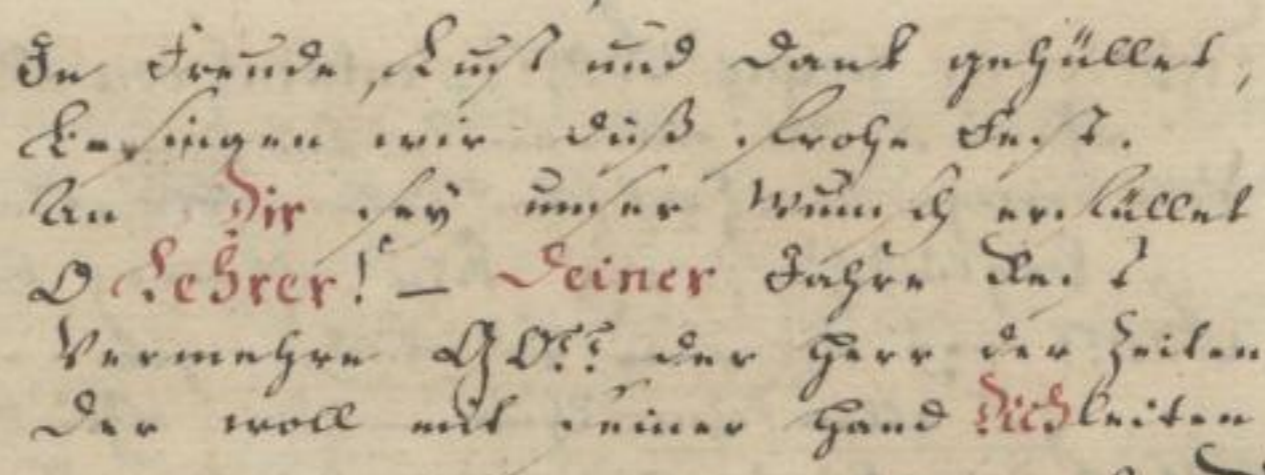 In Freude, Lust und Dank gehüllet,
Besingen wir diß frohe Fest.
An Dir sey unser Wunsch erfüllet
O Lehrer! – Deiner Jahre Rest
Vermehre GOTT der Herr der Zeiten
Der woll mit seiner Hand Dich leiten